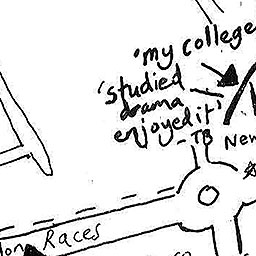 'my college
'studied
drama
enjoyed it'
- TB
New
Races